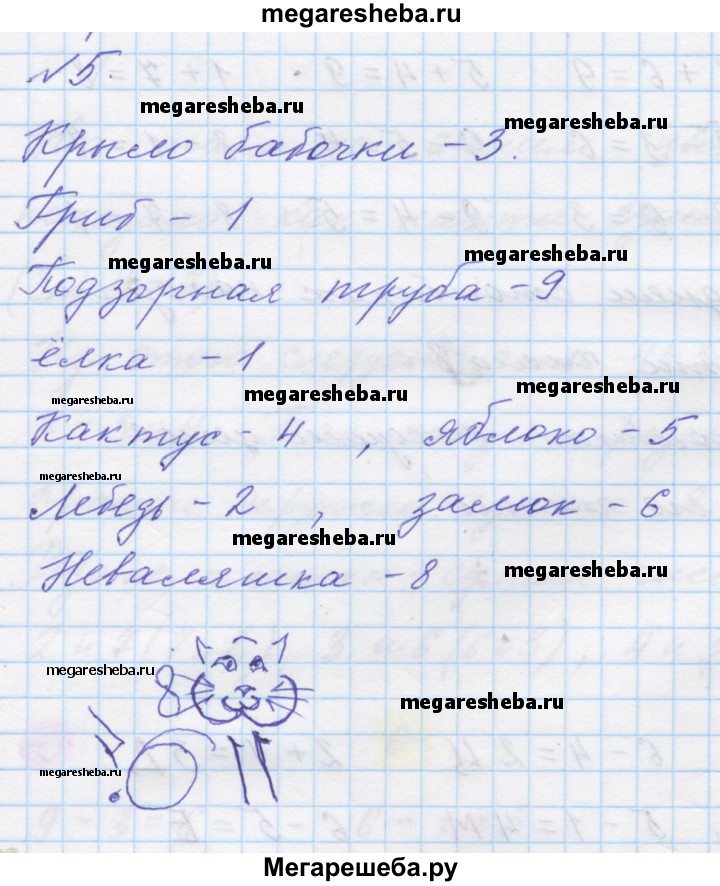 megaresheba.ru
№5.
megaresheba.ru
megaresheba.ru
Крыло бабочки - 3.
Гриб - 1
megaresheba.ru
megaresheba.ru
Подзорная труба - 9
ёлка - 1
megaresheba.ru
megaresheba.ru
megaresheba.ru
Кактус - 4 , яблоко - 5
megaresheba.ru
Лебедь - 2 , замок - 6
megaresheba.ru
Неваляшка - 8
megaresheba.ru
megaresheba.ru
megaresheba.ru
megaresheba.ru
Мегарешеба.ру